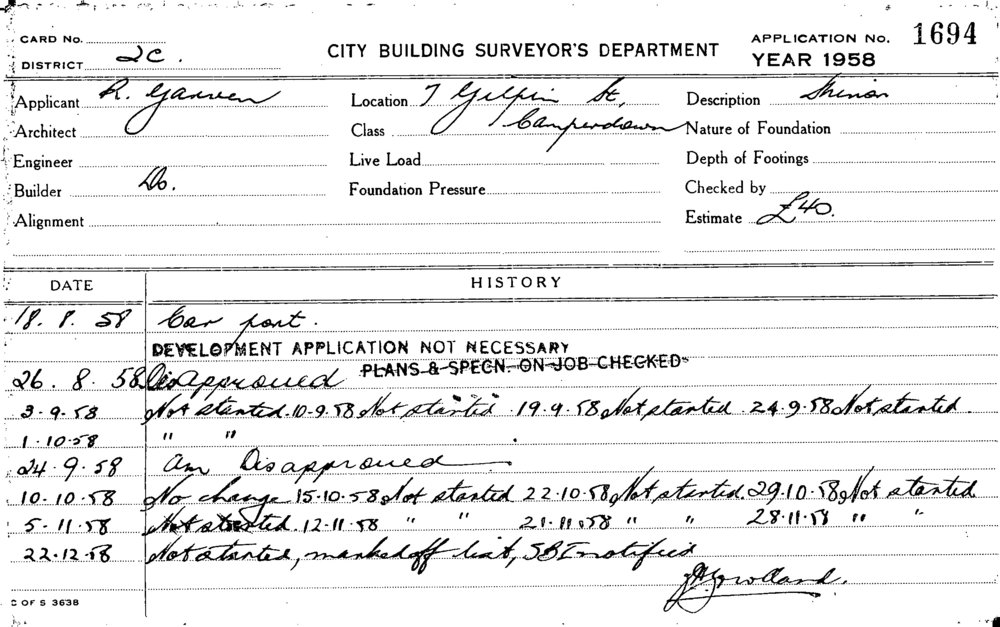 CARD No.
DISTRICT 2C.
CITY BUILDING SURVEYOR'S DEPARTMENT
APPLICATION No. 1694
YEAR 1958
Applicant R. Garven
Location 7 Gilpin St,
Description Minor
Architect
Class Camperdown
Nature of Foundation
Engineer
Live Load
Depth of Footings
Builder Do.
Foundation Pressure
Checked by
Alignment
Estimate £40.
DATE HISTORY
18. 8. 58 Car port.
DEVELOPMENT APPLICATION NOT NECESSARY
PLANS & SPECN. ON JOB CHECKED
26. 8. 58 Disapproved
3-9-58 Not started. 10-9-58 Not started 19-9-58 Not started 24-9-58 Not started.
1-10-58 " "
24-9-58 Am Disapproved
10-10-58 No change 15-10-58 Not started 22-10-58 Not started. 29-10-58 Not started
5-11-58 Not started. 12-11-58 " " 21-11-58 " " 28-11-58 " "
22-12-58 Not started, marked off list, SBI notified
C OF S 3638